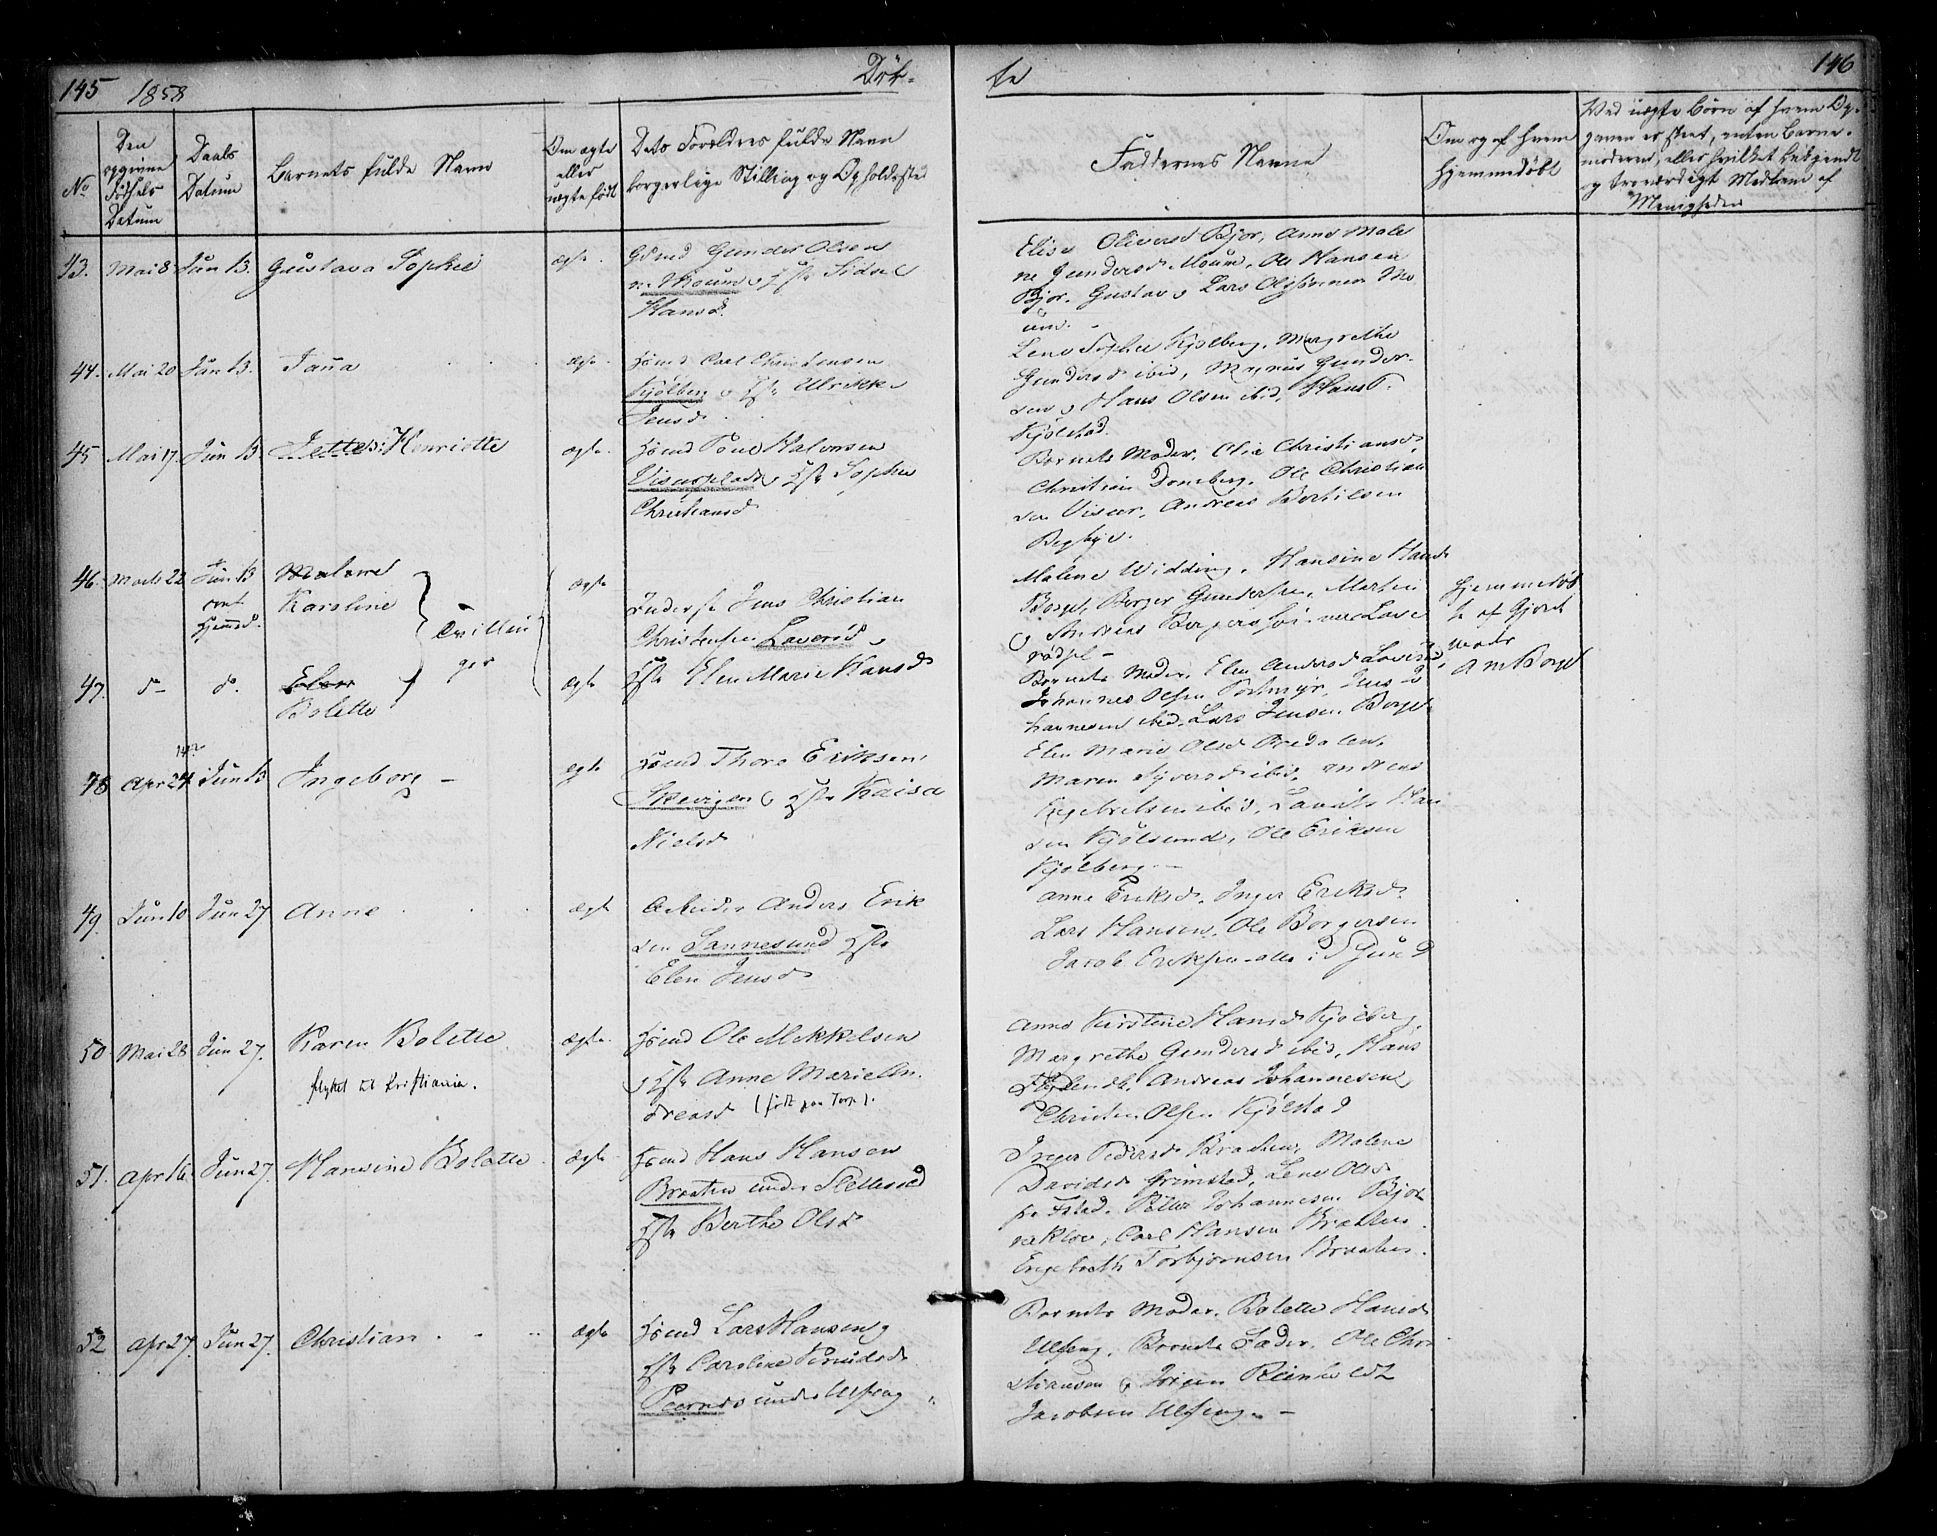 145 1858 Døb-
te 146
No
Den opgivne Fødsels Datum
Daabs Datum
Barnets fulde Navn
Om ægte eller uægte født
Dets Forældres fulde Navn borgerlige Stilling og Opholdssted
Faddernes Navne
Om og af hvem hjemmedøbt
Ved uægte Børn af hvem Op-
givn er skeet, enten Barne-
moderen, eller hvilket bekjendt
og troværdigt Medlem af
Menigheden
43. Mai 8 Jun 13. Gustava Sophie ægte.
Gbmd Gunder Olsen
Moum Hst Sidsel
Hansd.
Elise Oliversd Bjor, Anne Male
ne Gundersd Moum, Ole Hansen
Bjor. Gustav o Lars Mo
um. -
44. Mai 20 Jun 13. ægte
Hsmd Carl Christensen
Kjølberg o Hst Ulrikke
Jensd.
Lene Sophie Kjølberg, Margrethe
Gundersd ibid, Magnus Gunder-
sen o Hans Olsen ibid, Hans P.
Kjølstad.
45 Mai 17. Jun 13. Jette Henriette ægte.
Hsmd Halvorsen
o Hst Sophie
Christiansd
Barnets Moder, Christiansd
Christian Doneberg. Ole Christian
sen Viseur, Andreas Bertilsen
Begbye.
46. Marts 22 Jun 13 Malene
Karoline
Tvillin
ger
ægte
Jens Christian
Christensen Laverød o
Hst Elen Marie Hansd
Malene Widding, Hansine Hansd
Borge, Borger Gundersen, Martin
o Andreas Lave
rød
hjemmedøb
t af Gjord
moder
A M Borge
47. d- d. Elen
Bolette
ægte
Barnets Moder, Elen Andersd Laverød,
Johannes Olsen Jens Jo
hannesen ibid. Lars Jensen Borge
48 Apr 24 Jun 13 Ingeborg - ægte
Hsmd Thore Eriksen,
o Hst Kaisa
Nielsd
Elen Marie Olsd
Maren Syversd ibid, Andreas
Engebretsen ibid, Lauritz Han
sen Kjølsund, Ole Eriksen
Kjølberg. -
49. Jun 10 Jun 27 Anne ægte
Arbeider Anders Erik
sen Sannesund Hst
Elen Jensd
Anne Eriksd. Inger Eriksd.
Lars Hansen, Ole Borgersen
Jacob Eriksen - alle i Sund
50 Mai 28 Jun 27. Karen Bolette. ægte.
flyttet til Kristiania.
Hsmd Ole Mikkelsen
o Hst Anne Marie An
dreasd (født paa Torp).
Anne Kirstine Hansd Kjølberg,
Margrethe Gundersd ibid, Hans
Andreas Johannesen
Christen Olsen Kjølstad
51. Apr 16 Jun 27. Hansine Bolette ægte
Hsmd Hans Hansen
Braaten under Slettevold
Hst Berthe Olsd
Inger Pedersd Braaten, Malene
Davidsd Grimstad, Lene Olsd
Petter Johannesen Bjør
neklov, Carl Hansen Braaten
Engebreth Torbjørnsen Braaten.
52 Apr 27. Jun 27. Christian ægte
Hsmd Lars Hansen o
Hst Caroline Knudsd
under Ulfeng
Barnets Moder, Bolette Hansd
Ulfeng, Barnets Fader, Ole Chri
stiansen o Jørgen Reinholdt
Jacobsen Ulfeng. -